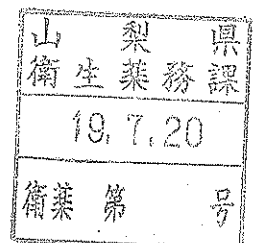 山梨県
衛生薬務課
19.7.20
衛薬第 号